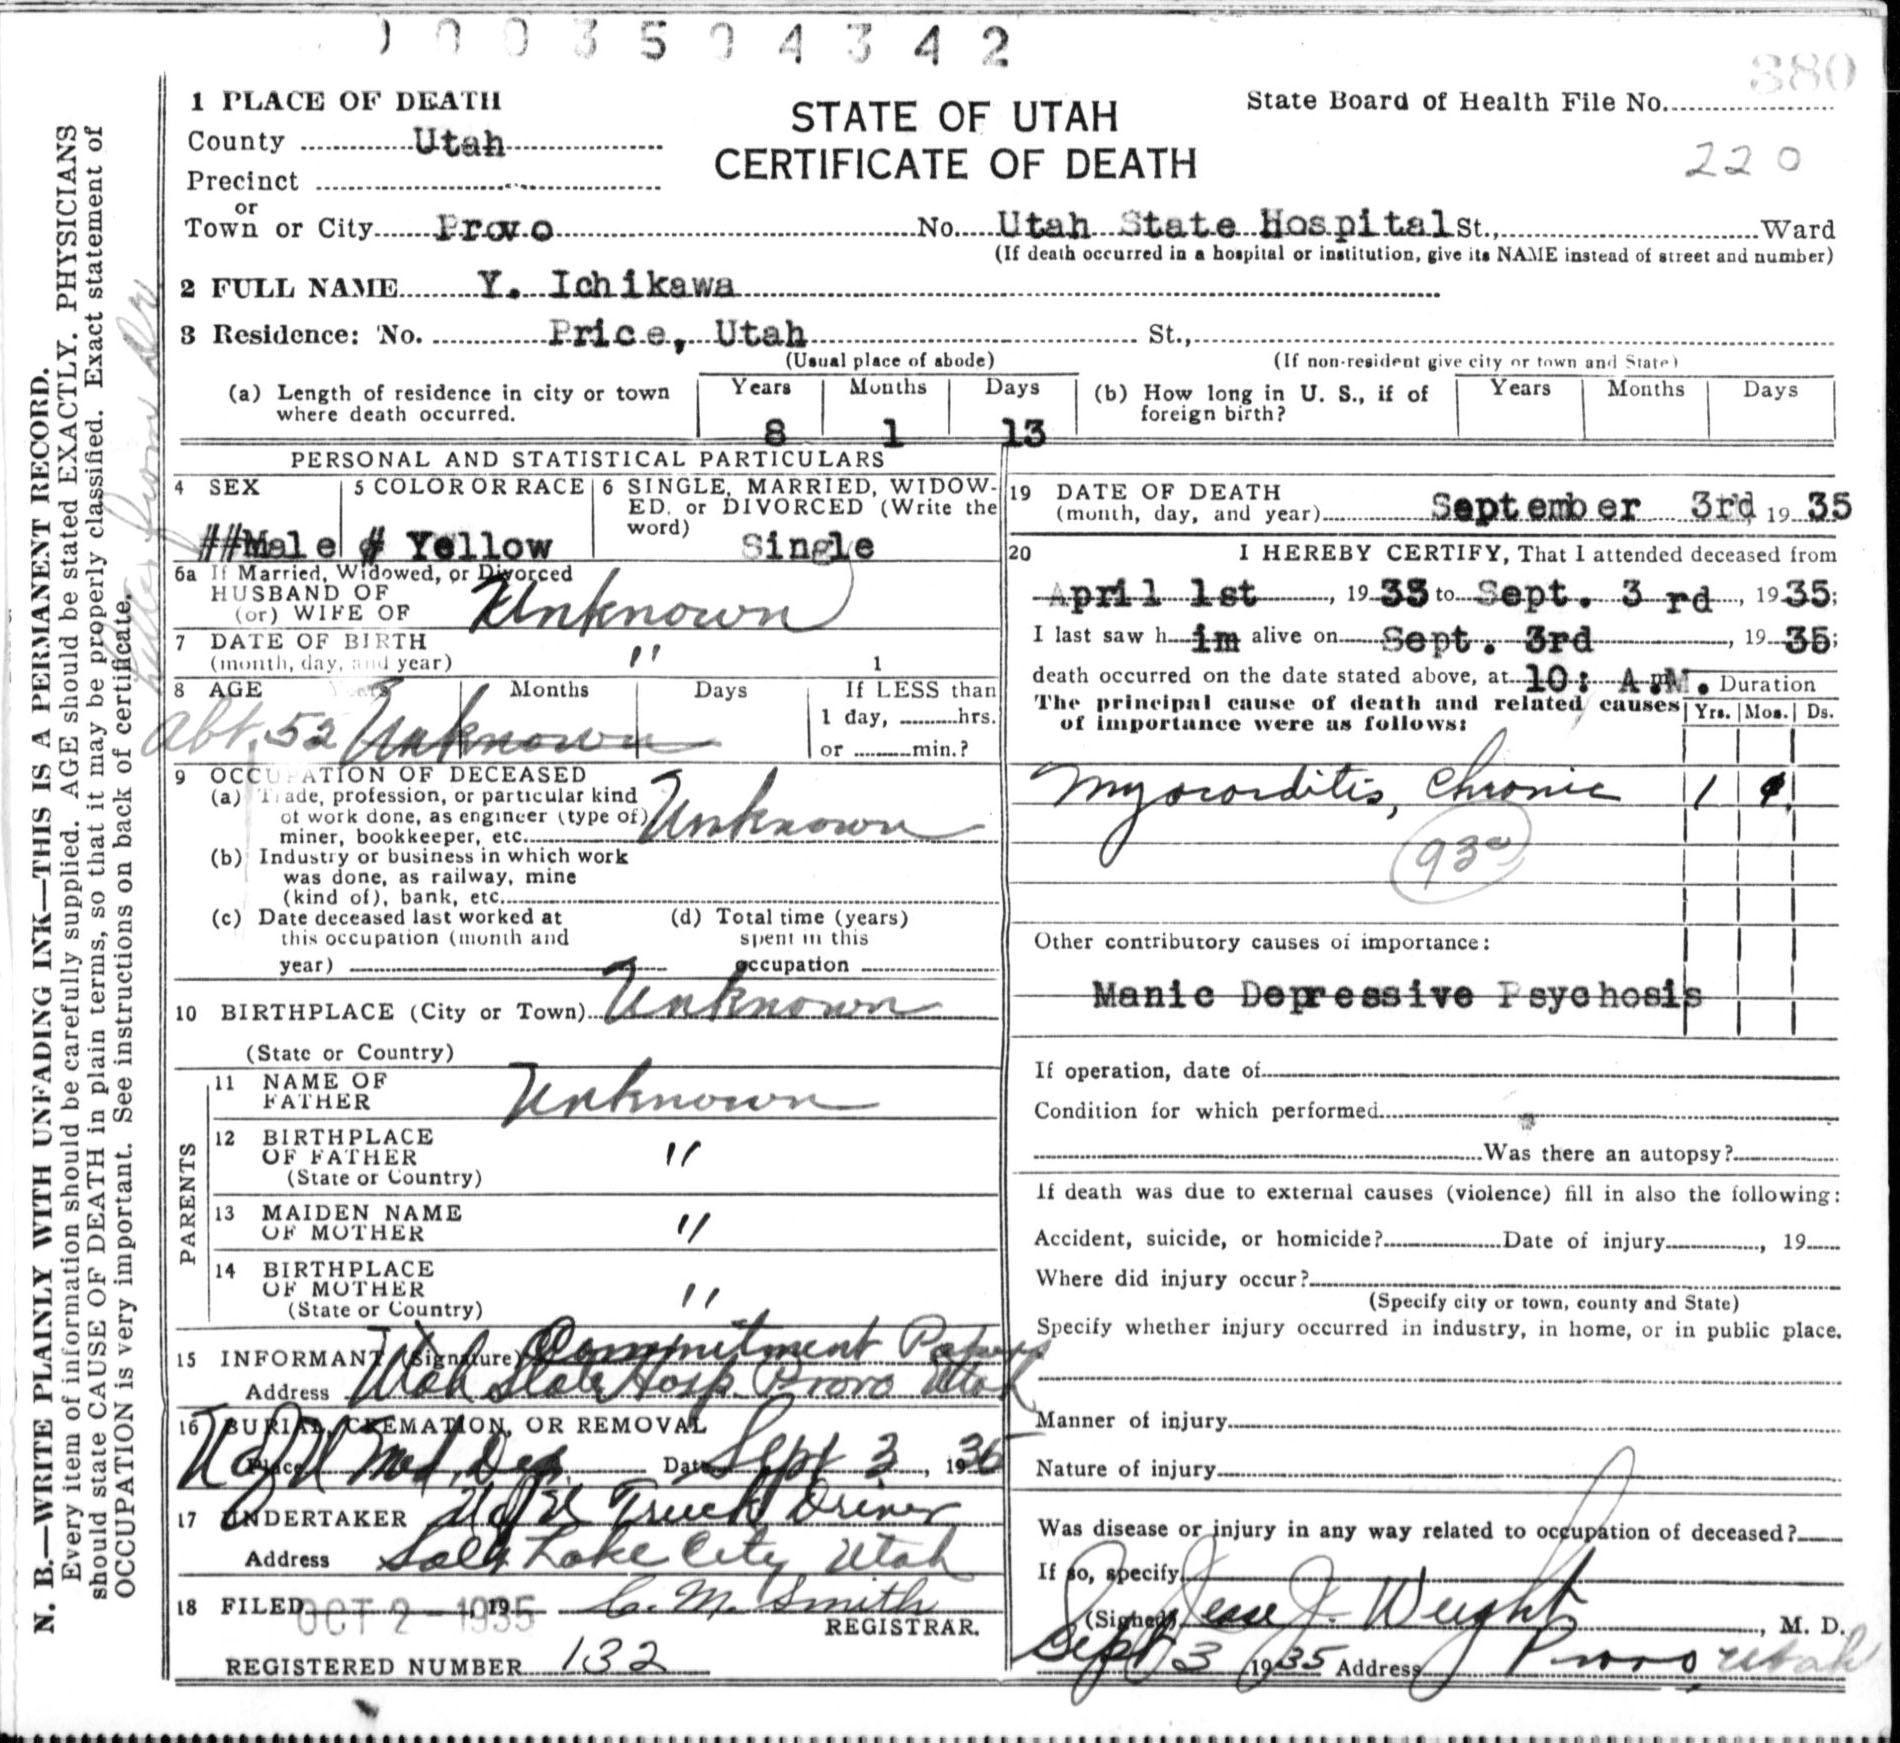 1 0 0 3 5 0 4 3 4 2
380
1 PLACE OF DEATH
STATE OF UTAH
CERTIFICATE OF DEATH
State Board of Health File No.
220
County Utah
Precinct
or
Town or City Provo No. Utah State Hospital St., Ward
(If death occurred in a hospital or institution, give its NAME instead of street and number)
2 FULL NAME Y. Ichikawa
3 Residence: No. Price, Utah St.,
(Usual place of abode) (If non-resident give city or town and State)
(a) Length of residence in city or town where death occurred. Years 8 Months 1 Days 13
(b) How long in U. S., if of foreign birth? Years Months Days
PERSONAL AND STATISTICAL PARTICULARS
4 SEX ##Male
5 COLOR OR RACE # Yellow
6 SINGLE, MARRIED, WIDOW-
ED, or DIVORCED (Write the
word) Single
6a If Married, Widowed, or Divorced
HUSBAND OF
(or) WIFE OF Unknown
7 DATE OF BIRTH
(month, day, and year) " 1
8 AGE Years Months Days If LESS than
1 day, hrs.
or min.?
Abt. 52 Unknown
9 OCCUPATION OF DECEASED
(a) Trade, profession, or particular kind
of work done, as engineer (type of)
miner, bookkeeper, etc. Unknown
(b) Industry or business in which work
was done, as railway, mine
(kind of), bank, etc.
(c) Date deceased last worked at
this occupation (month and
year)
(d) Total time (years)
spent in this
occupation
10 BIRTHPLACE (City or Town) Unknown
(State or Country)
PARENTS
11 NAME OF
FATHER Unknown
12 BIRTHPLACE
OF FATHER "
(State or Country)
13 MAIDEN NAME
OF MOTHER "
14 BIRTHPLACE
OF MOTHER "
(State or Country)
15 INFORMANT (Signature) Commitment Papers
Address Utah State Hosp. Provo Utah
16 BURIAL, CREMATION, OR REMOVAL
Place U of U Med. Dep. Date Sept 3, 1935
17 UNDERTAKER U of U Truck Driver
Address Salt Lake City Utah
18 FILED OCT 2 - 1935 , 19 C. M. Smith
REGISTRAR.
REGISTERED NUMBER 132
19 DATE OF DEATH
(month, day, and year) September 3rd, 19 35
20 I HEREBY CERTIFY, That I attended deceased from
April 1st, 19 33 to Sept. 3 rd, 19 35;
I last saw h im alive on Sept. 3rd, 19 35;
death occurred on the date stated above, at 10: A.M. m.
Duration
The principal cause of death and related causes
of importance were as follows:
Yrs. Mos. Ds.
Myocarditis, Chronic 1
93c
Other contributory causes of importance:
Manic Depressive Psychosis
If operation, date of
Condition for which performed
Was there an autopsy?
If death was due to external causes (violence) fill in also the following:
Accident, suicide, or homicide? Date of injury, 19
Where did injury occur?
(Specify city or town, county and State)
Specify whether injury occurred in industry, in home, or in public place.
Manner of injury
Nature of injury
Was disease or injury in any way related to occupation of deceased?
If so, specify
(Signed) Jesse J. Weight, M. D.
Sept 3 1935 Address Provo, Utah
N. B.—WRITE PLAINLY WITH UNFADING INK—THIS IS A PERMANENT RECORD.
Every item of information should be carefully supplied. AGE should be stated EXACTLY. PHYSICIANS
should state CAUSE OF DEATH in plain terms, so that it may be properly classified. Exact statement of
OCCUPATION is very important. See instructions on back of certificate.
Letter from Dr